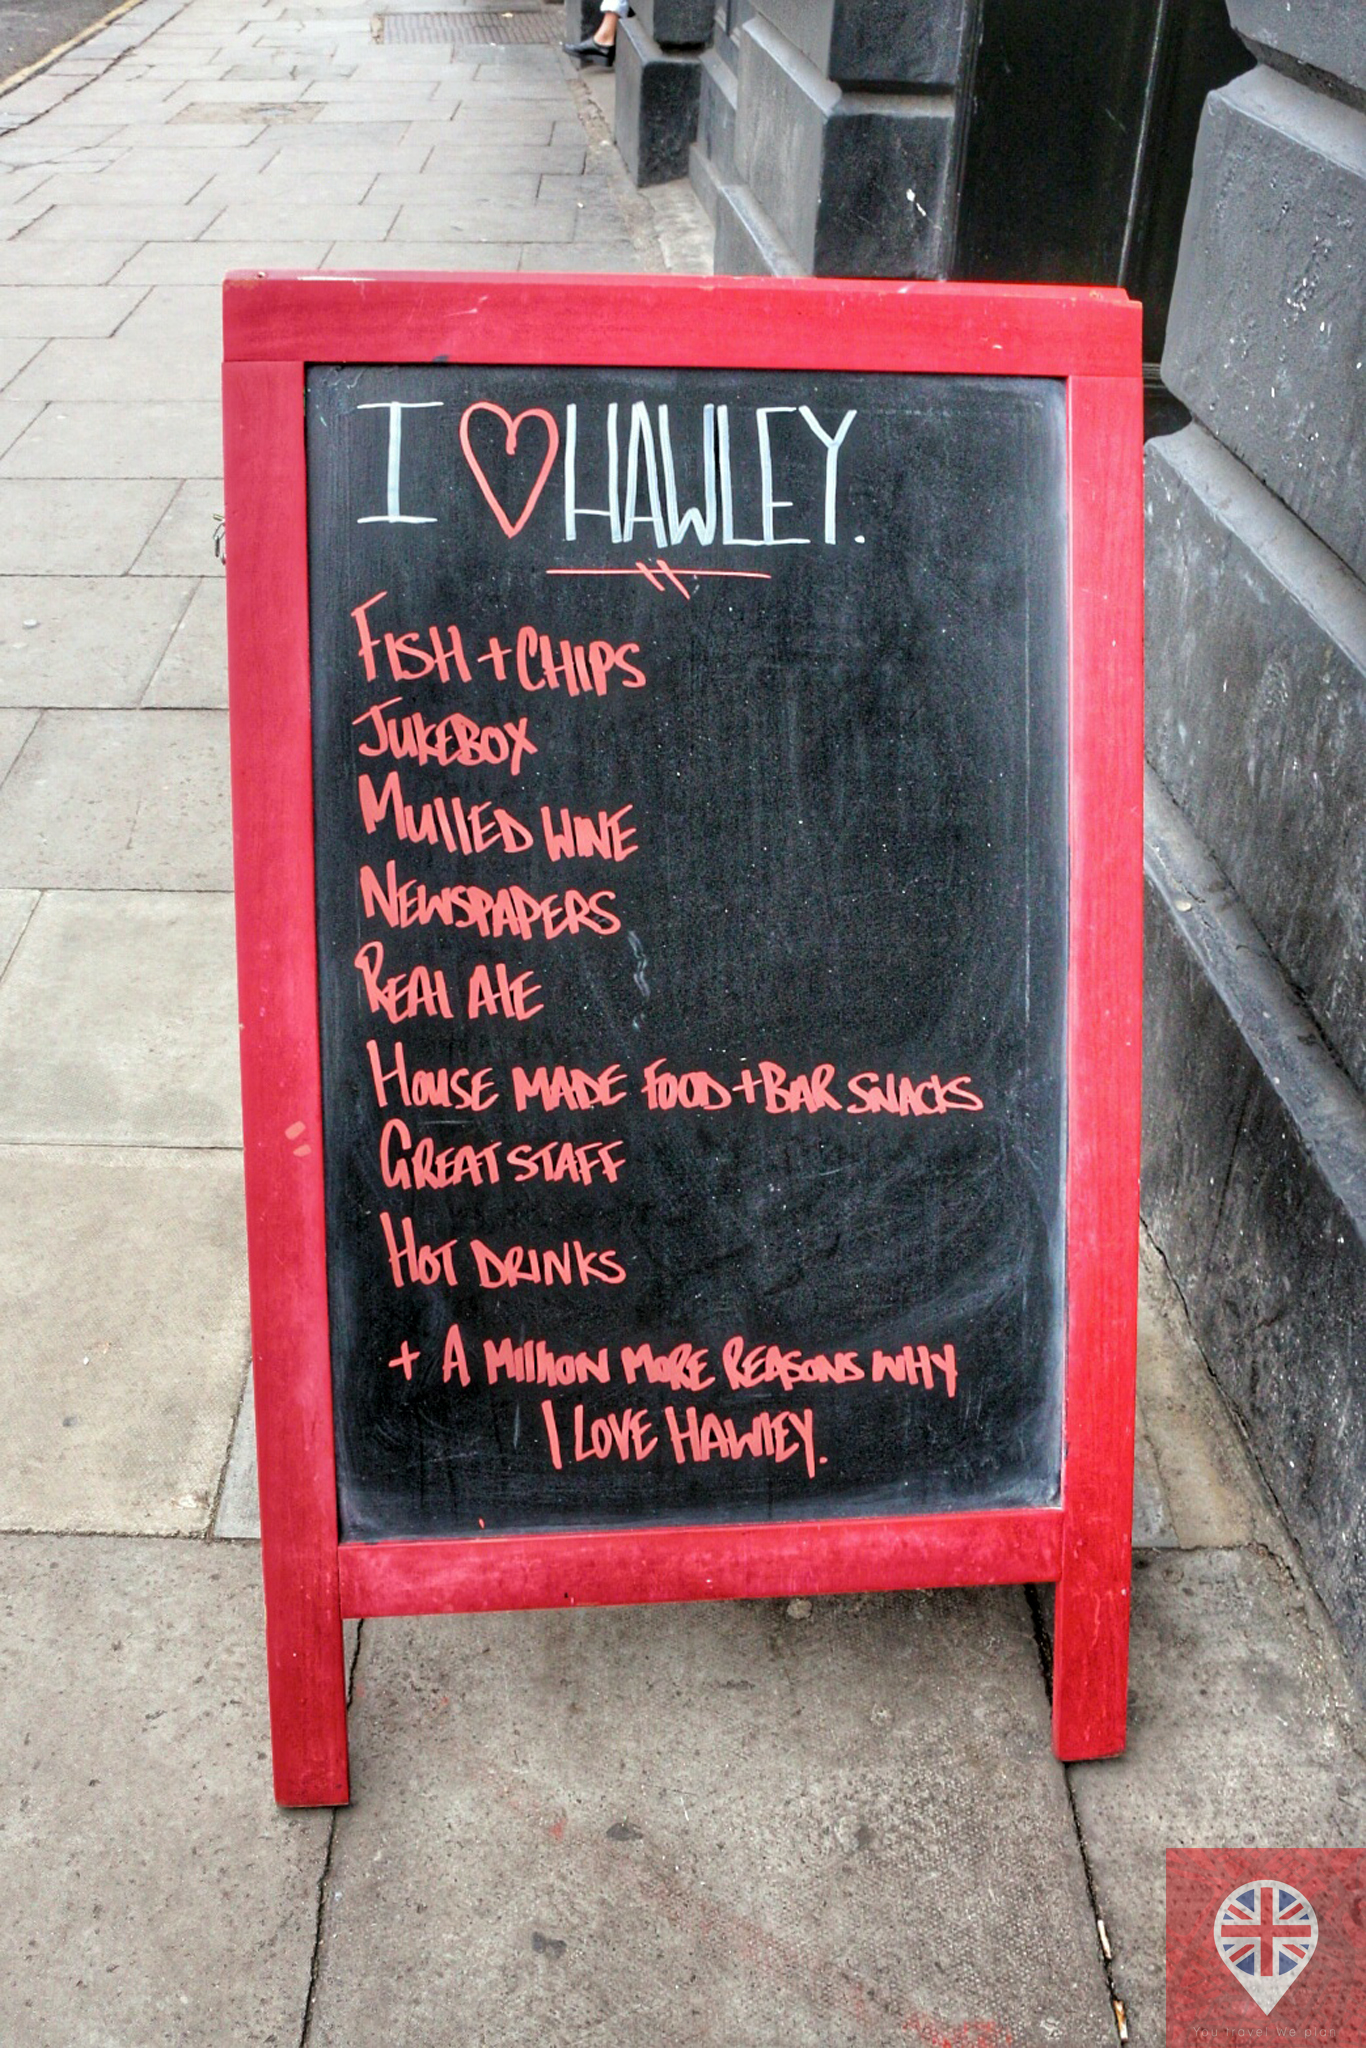 I ♡ HAWLEY.
FISH + CHIPS
JUKEBOX
MULLED WINE
NEWSPAPERS
REAL ALE
HOUSE MADE FOOD + BAR SNACKS
GREAT STAFF
HOT DRINKS
+ A MILLION MORE REASONS WHY
I LOVE HAWLEY.
You travel We plan